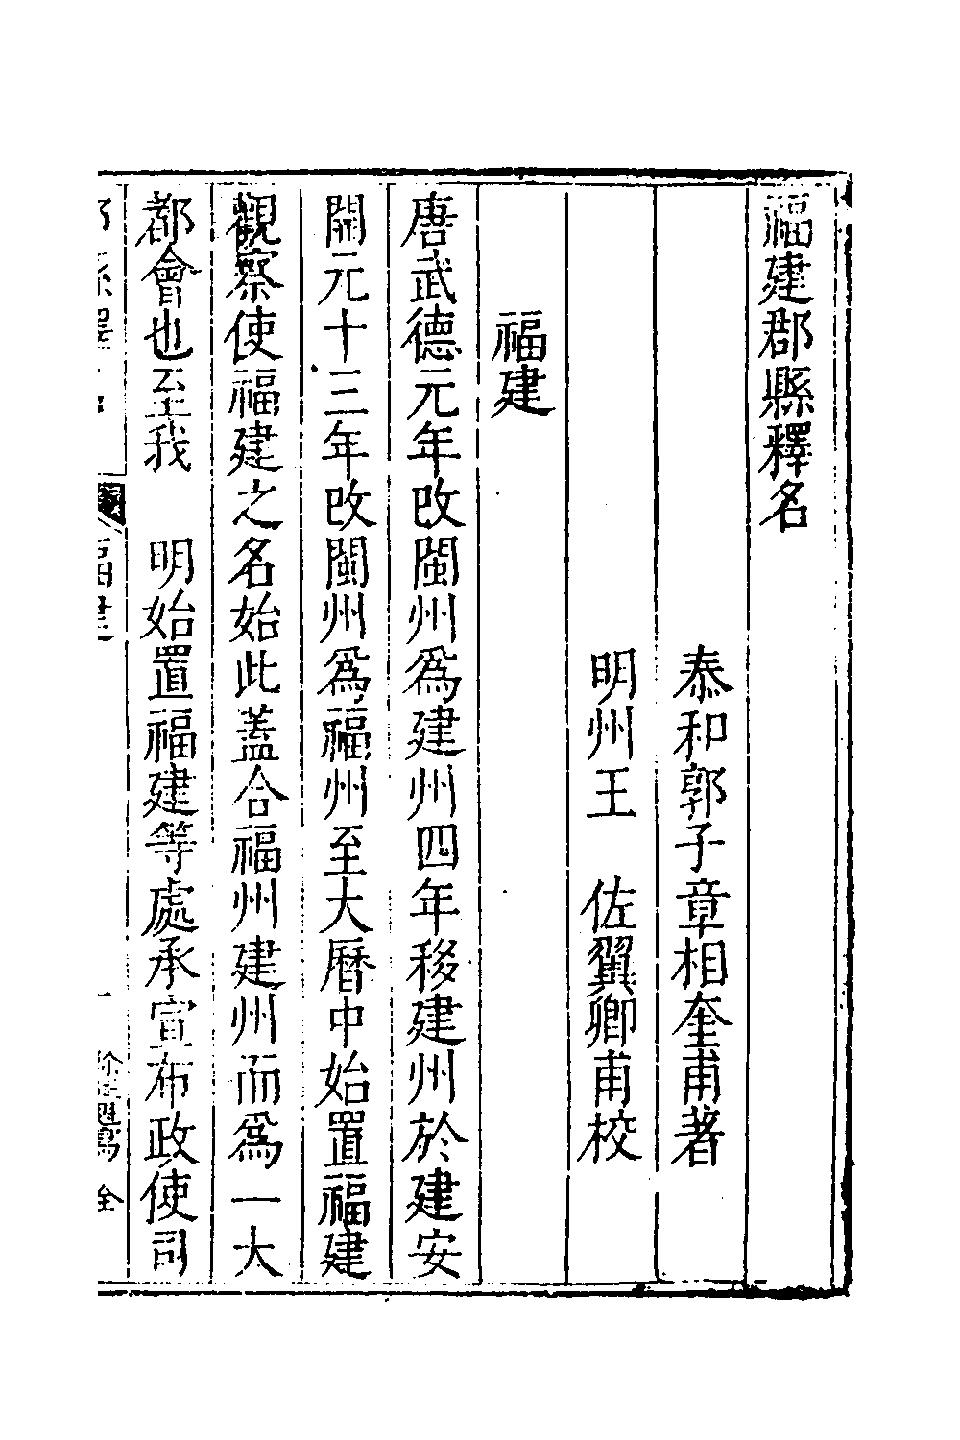 福建郡縣釋名
泰和郭子章相奎甫著
明州王　佐翼卿甫校
福建
唐武德元年改閩州爲建州四年移建州於建安
開元十三年改閩州爲福州至大曆中始置福建
觀察使福建之名始此蓋合福州建州而爲一大
都會也至我　明始置福建等處承宣布政使司
福建